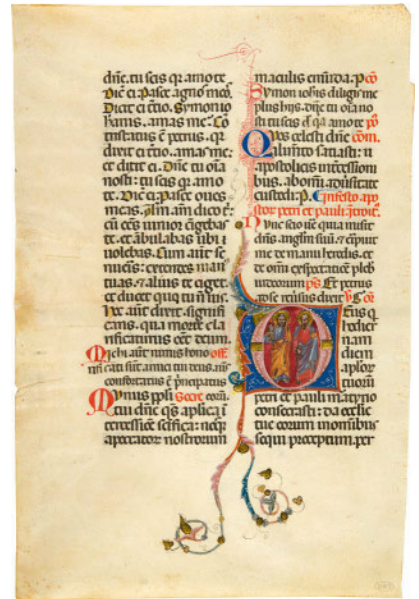 dñe. tu scis qr amo te
Dic̄ ei. Pasce agnos meos.
Dicit ei t̄cio. Symon io
hannis. amas me. Cō
tristatus ē petrus. qr
dixit ei t̄cio. amas me:
et dixit ei. Dn̄e tu oīa
nosti: tu scis qr amo
te. Dic̄ ei Pasce oues
meas. dico t̄:
cū eēs iunior cīgebas
te. et ābulabas ubi
uolebas. Cum aūt se
nueris: extendes man
tuas. et alius te cīget.
et ducet quo tu nō uis.
Hoc aūt dixit. signifi
cans. qua morte cla
rificaturus eēt deum.
Michi aūt nimis hono off
ficati sunt. amici tui deus. nimis
confortatus ē p̄ncipatus
Munus ppli Secre eorū.
tui dn̄e qs aplica ī
tercessiōe sc̄ifica: 
a peccator nostrorum
maculis emūda. cō
Symon iohis diligis me
plus hiis. dn̄e tu oīa no
sti tu scis dn̄e qa amo te
Quos celesti dn̄e com.
alimēto satiasti:
apostolicis intercessioni
bus. ab omī aduersitate
custodi. P. In festo apo
stolor petri et pauli. Introit.
Nunc scio uere quia misit
dn̄s anglm suū. et eripuit
me de manu herodis. et
de omī expectatiōe pleb
iudeorum ps Et petrus
ad se reuersus dixit
Deus q
hodier
nam
diem
aplor
tuorū
petri et pauli martyrio
consecrasti: da eccl̄ie
tue eorum in omnibus
sequi preceptum. per